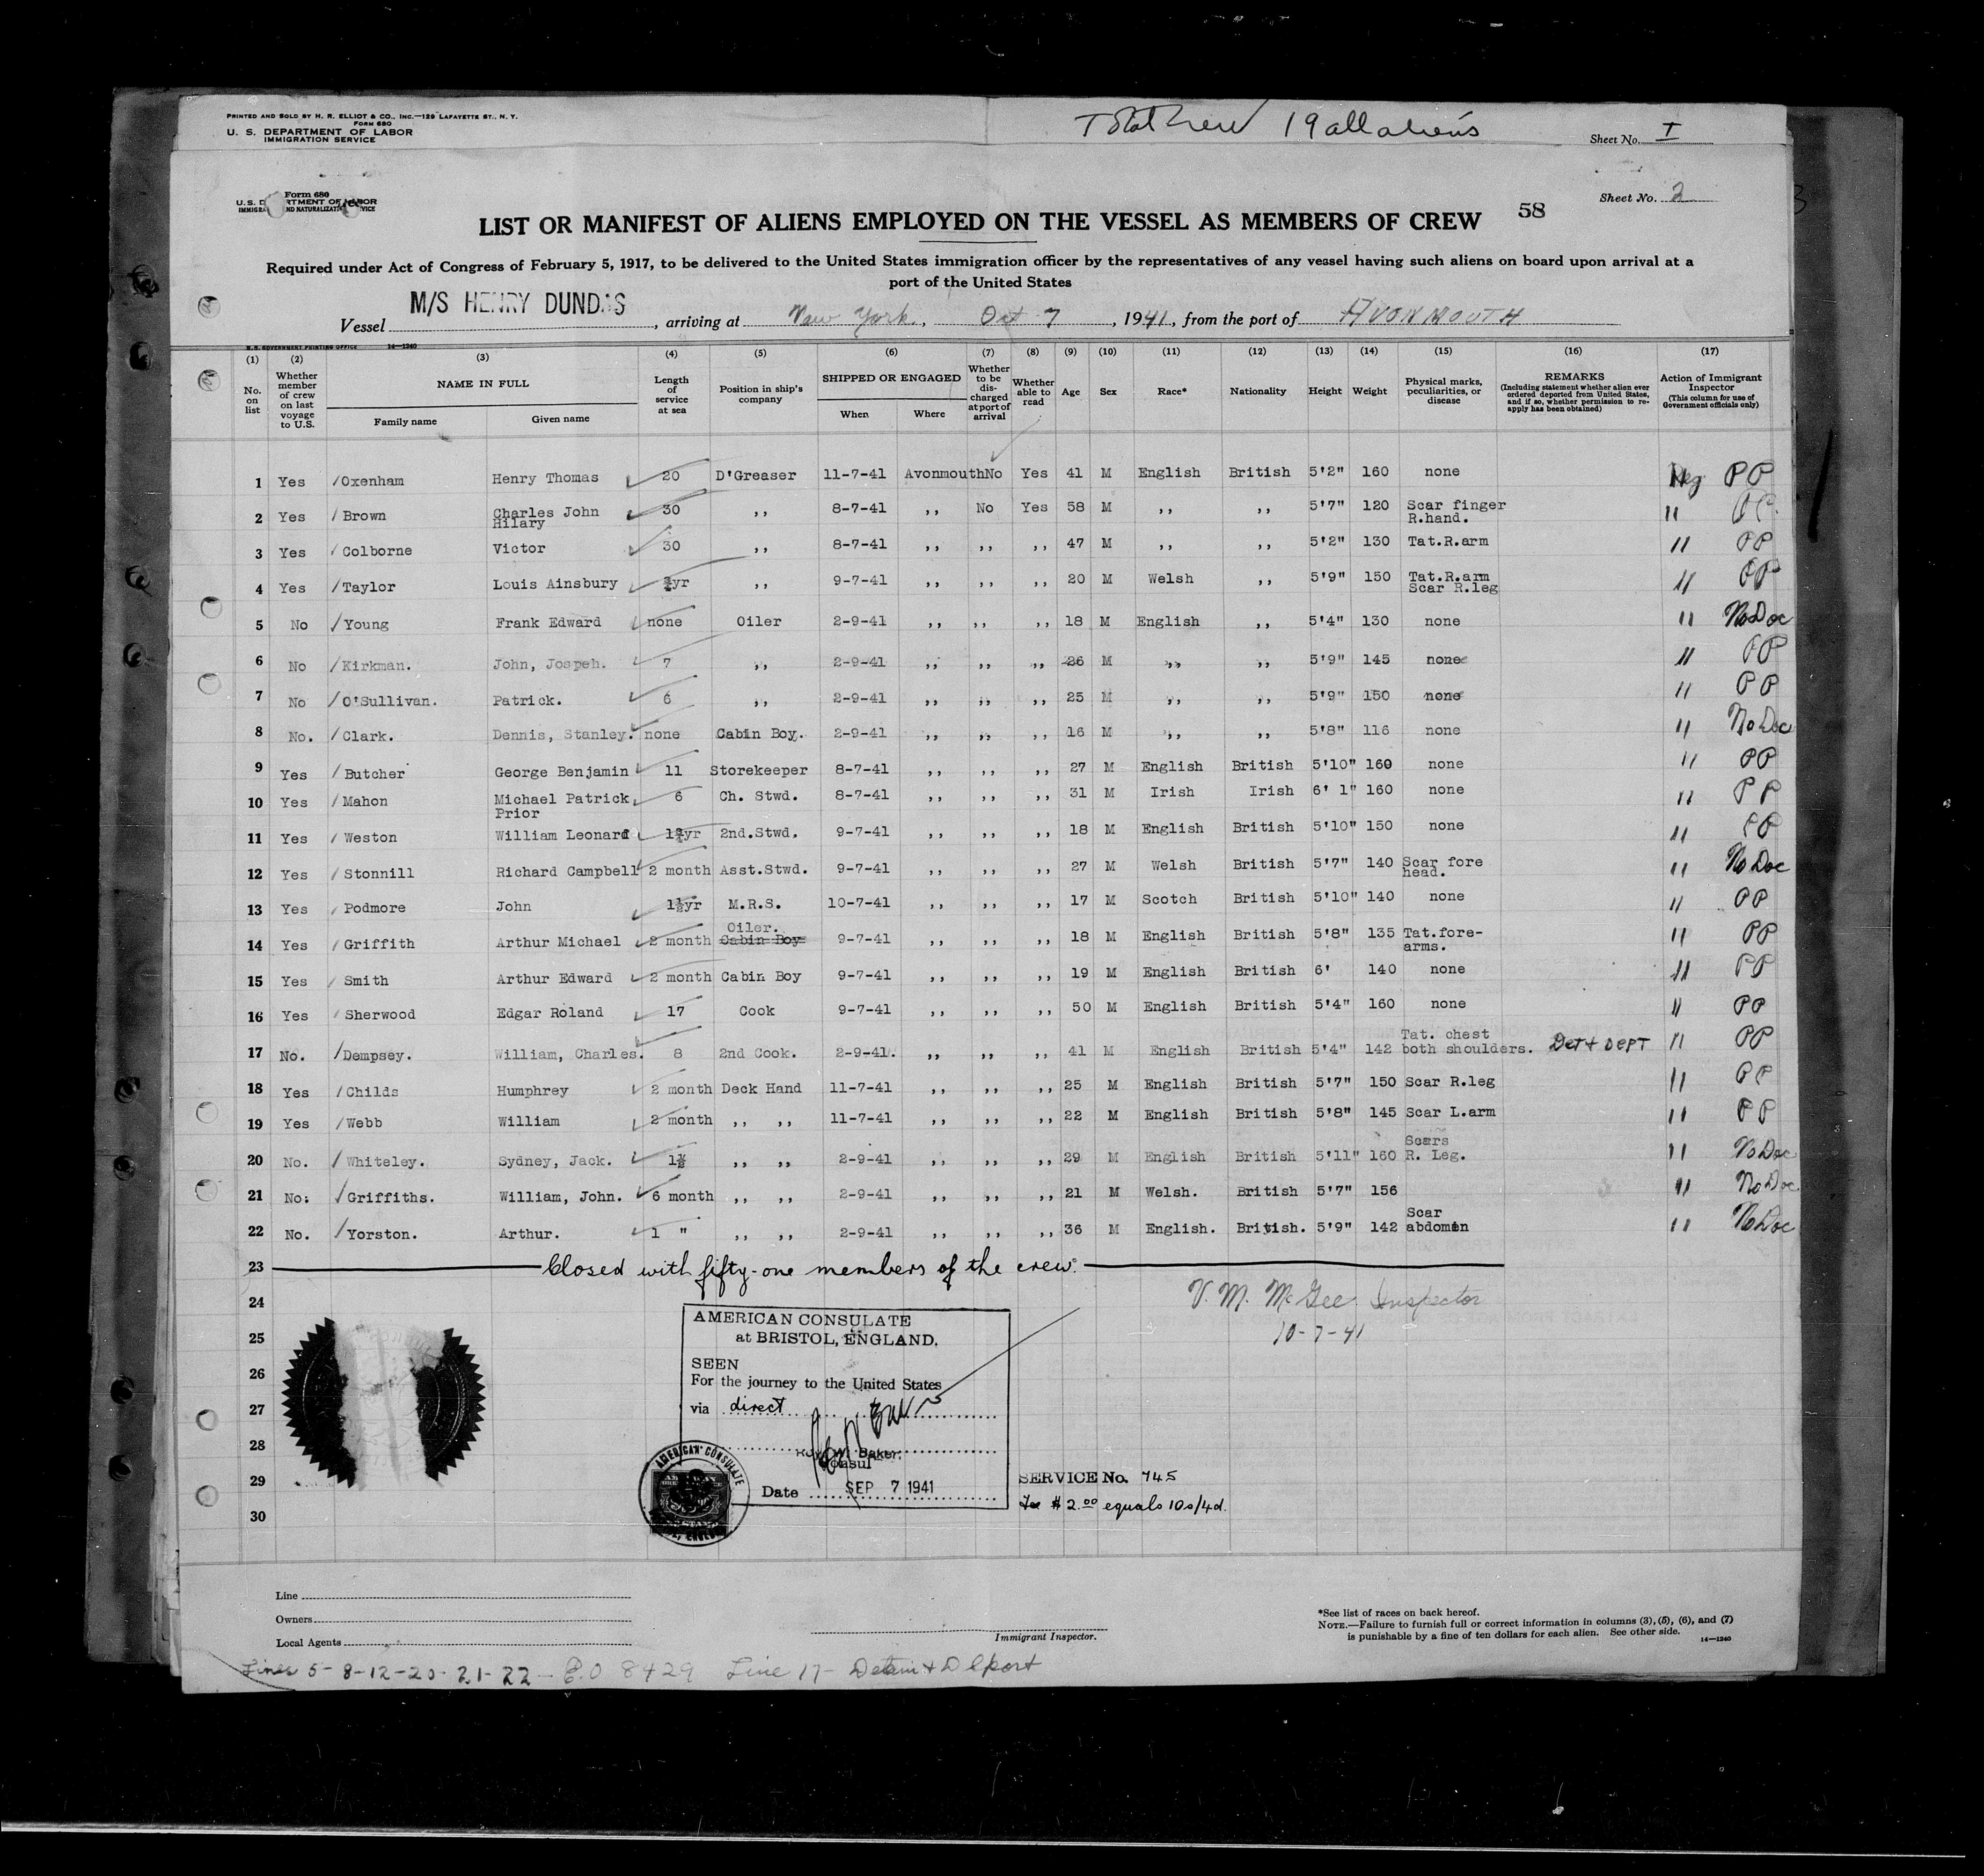 PRINTED AND SOLD BY H. R. ELLIOT & CO., INC.—129 LAFAYETTE ST., N. Y.
FORM 680
U. S. DEPARTMENT OF LABOR
IMMIGRATION SERVICE
19 all aliens
Sheet No. I
Form 680
U.S. D RTMENT OF LABOR
IMMIGRA ND NATURALIZATI VICE
Sheet No. 2
LIST OR MANIFEST OF ALIENS EMPLOYED ON THE VESSEL AS MEMBERS OF CREW 58
Required under Act of Congress of February 5, 1917, to be delivered to the United States immigration officer by the representatives of any vessel having such aliens on board upon arrival at a
port of the United States
Vessel M/S HENRY DUNDAS, arriving at New York, Oct 7, 1941, from the port of AVONMOUTH
U.S. GOVERNMENT PRINTING OFFICE 14—1240
(1) No. on list (2) Whether member of crew on last voyage to U.S. (3) NAME IN FULL Family name Given name (4) Length of service at sea (5) Position in ship's company (6) SHIPPED OR ENGAGED When Where (7) Whether to be discharged at port of arrival (8) Whether able to read (9) Age (10) Sex (11) Race* (12) Nationality (13) Height (14) Weight (15) Physical marks, peculiarities, or disease (16) REMARKS (Including statement whether alien ever ordered deported from United States, and if so, whether permission to re-apply has been obtained) (17) Action of Immigrant Inspector (This column for use of Government officials only)
1 Yes Oxenham Henry Thomas 20 D'Greaser 11-7-41 Avonmouth No Yes 41 M English British 5'2" 160 none PP
2 Yes Brown Charles John Hilary 30 ,, 8-7-41 ,, No Yes 58 M ,, ,, 5'7" 120 Scar finger R.hand. " PP
3 Yes Colborne Victor 30 ,, 8-7-41 ,, ,, ,, 47 M ,, ,, 5'2" 130 Tat.R.arm " PP
4 Yes Taylor Louis Ainsbury ¾yr ,, 9-7-41 ,, ,, ,, 20 M Welsh ,, 5'9" 150 Tat.R.arm Scar R.leg " PP
5 No Young Frank Edward none Oiler 2-9-41 ,, ,, ,, 18 M English ,, 5'4" 130 none " No Doc
6 No Kirkman. John, Jospeh. 7 ,, 2-9-41 ,, ,, ,, 26 M ,, ,, 5'9" 145 none " PP
7 No O'Sullivan. Patrick. 6 ,, 2-9-41 ,, ,, ,, 25 M ,, ,, 5'9" 150 none " PP
8 No. Clark. Dennis, Stanley. none Cabin Boy. 2-9-41 ,, ,, ,, 16 M ,, ,, 5'8" 116 none " No Doc
9 Yes Butcher George Benjamin 11 Storekeeper 8-7-41 ,, ,, ,, 27 M English British 5'10" 160 none " PP
10 Yes Mahon Michael Patrick Prior 6 Ch. Stwd. 8-7-41 ,, ,, ,, 31 M Irish Irish 6' 1" 160 none " PP
11 Yes Weston William Leonard 1¾yr 2nd.Stwd. 9-7-41 ,, ,, ,, 18 M English British 5'10" 150 none " PP
12 Yes Stonnill Richard Campbell 2 month Asst.Stwd. 9-7-41 ,, ,, ,, 27 M Welsh British 5'7" 140 Scar fore head. " No Doc
13 Yes Podmore John 1½yr M.R.S. 10-7-41 ,, ,, ,, 17 M Scotch British 5'10" 140 none " PP
14 Yes Griffith Arthur Michael 2 month Oiler. Cabin Boy 9-7-41 ,, ,, ,, 18 M English British 5'8" 135 Tat.fore-arms. " PP
15 Yes Smith Arthur Edward 2 month Cabin Boy 9-7-41 ,, ,, ,, 19 M English British 6' 140 none " PP
16 Yes Sherwood Edgar Roland 17 Cook 9-7-41 ,, ,, ,, 50 M English British 5'4" 160 none " PP
17 No. Dempsey. William, Charles. 8 2nd Cook. 2-9-41. ,, ,, ,, 41 M English British 5'4" 142 Tat. chest both shoulders. Det & DEPT " PP
18 Yes Childs Humphrey 2 month Deck Hand 11-7-41 ,, ,, ,, 25 M English British 5'7" 150 Scar R.leg " PP
19 Yes Webb William 2 month ,, ,, 11-7-41 ,, ,, ,, 22 M English British 5'8" 145 Scar L.arm " PP
20 No. Whiteley. Sydney, Jack. 1½ ,, ,, 2-9-41 ,, ,, ,, 29 M English British 5'11" 160 Scars R. Leg. " No Doc
21 No. Griffiths. William, John. 6 month ,, ,, 2-9-41 ,, ,, ,, 21 M Welsh. British 5'7" 156 " No Doc.
22 No. Yorston. Arthur. 1 " ,, ,, 2-9-41 ,, ,, ,, 36 M English. British. 5'9" 142 Scar abdomen " No Doc
23 Closed with fifty-one members of the crew.
24 V. M. McGee Inspector
25 10-7-41
26
27
28
29
30
AMERICAN CONSULATE
at BRISTOL, ENGLAND.
SEEN
For the journey to the United States
via direct
Baker.
Consul
Date SEP 7 1941
AMERICAN CONSULATE
SERVICE No. 745
Fee $2.00 equals 10s/4d.
Line
Owners
Local Agents
Immigrant Inspector.
*See list of races on back hereof.
NOTE.—Failure to furnish full or correct information in columns (3), (5), (6), and (7)
is punishable by a fine of ten dollars for each alien. See other side. 14—1240
Lines 5-8-12-20-21-22- E.O 8429 Line 17- Detain & Deport